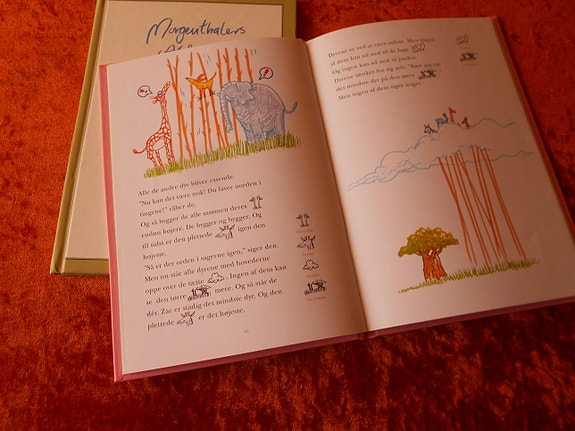 Morgenthalers
Alle de andre dyr bliver rasende.
"Nu kan det være nok! Du laver uorden i
tingene!" råber de.
Og så bygger de alle sammen deres
endnu højere. De bygger og bygger. Og
til sidst er den plettede igen den
højeste.
"Så er der orden i sagerne igen," siger den.
Men nu står alle dyrene med hovederne
oppe over de tætte . Ingen af dem kan
se den tørre mere. Og så står de
dér. Zac er stadig det mindste dyr. Og den
plettede er det højeste.
Dyrene er ved at være sultne. Men ingen
af dem kan nå ned til de høje
Og ingen kan nå ned til jorden.
Dyrene tænker for sig selv: "Bare jeg var
det mindste dyr på den tørre
Men ingen af dem siger noget.